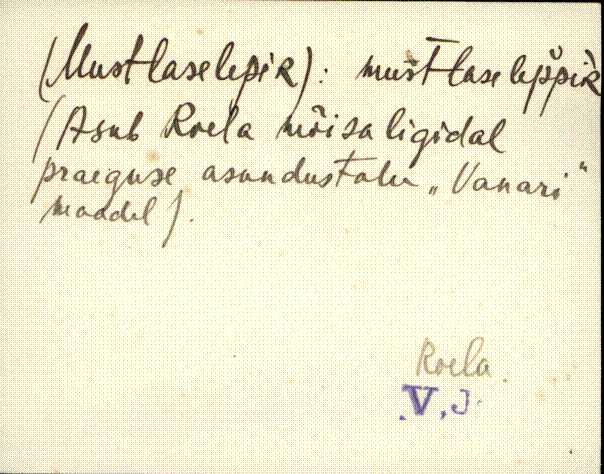 (Mustlaselepik): mustlaseleppik
(Asub Roela mõisa ligidal
praeguse asundustalu „Vanari"
maadel).
Roela.
V.J.